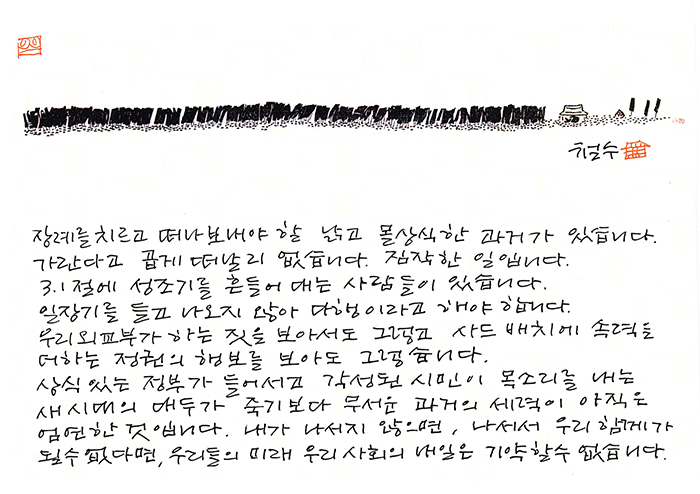 철수
장례를 치르고 떠나보내야 할 낡고 몰상식한 과거가 있습니다.
가란다고 곱게 떠날리 없습니다. 짐작한 일입니다.
3.1절에 성조기를 흔들어 대는 사람들이 있습니다.
일장기를 들고 나오지 않아 다행이라고 해야 합니다.
우리 외교부가 하는 짓을 보아서도 그렇고 사드 배치에 속력을
더하는 정권의 행보를 보아도 그렇습니다.
상식있는 정부가 들어서고 각성된 시민이 목소리를 내는
새시대의 대두가 죽기보다 무서운 과거의 세력이 아직은
엄연한 것입니다. 내가 나서지 않으면, 나서서 우리 함께가
될수 없다면, 우리들의 미래 우리 사회의 내일은 기약할수 없습니다.